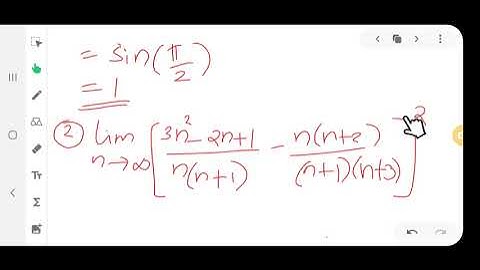 = sin(π/2)
= 1
② lim n→∞ [ (3n² - 2n+1)/(n(n+1)) - (n(n+2))/((n+1)(n+3)) ]²